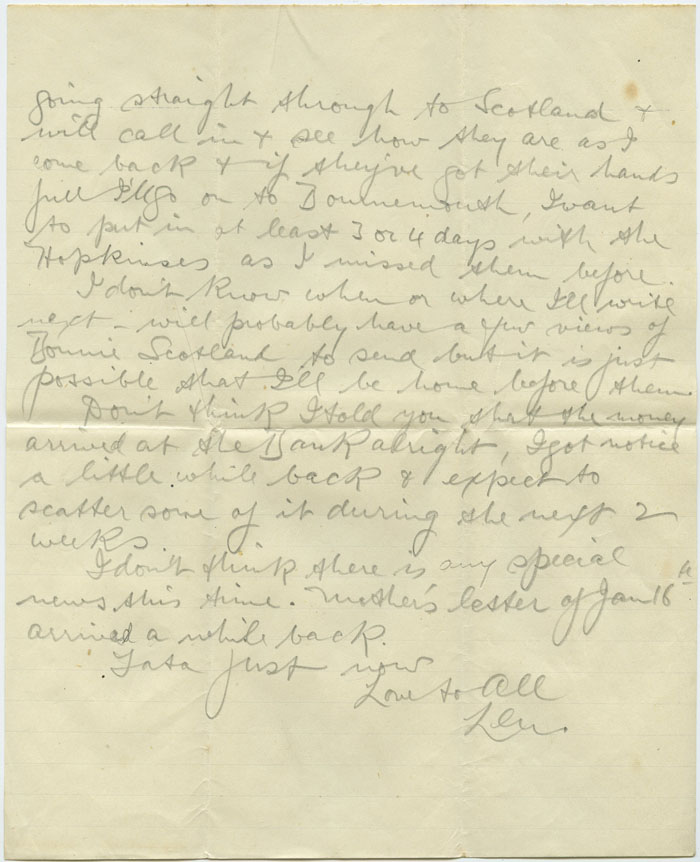 going straight through to Scotland &
will call in & see how they are as I
come back & if they've got their hands
full I'll go on to Bournemouth, I want
to put in at least 3 or 4 days with the
Hopkinses as I missed them before.
I don't know when or where I'll write
next – will probably have a few views of
Bonnie Scotland to send but it is just
possible that I'll be home before them
Don't think I told you that the money
arrived at the Bank alright, I got notice
a little while back & expect to
scatter some of it during the next 2
weeks
I don't think there is any special
news this time. Mother's letter of Jan 16th
arrived a while back.
Tata just now
Love to All
Len.